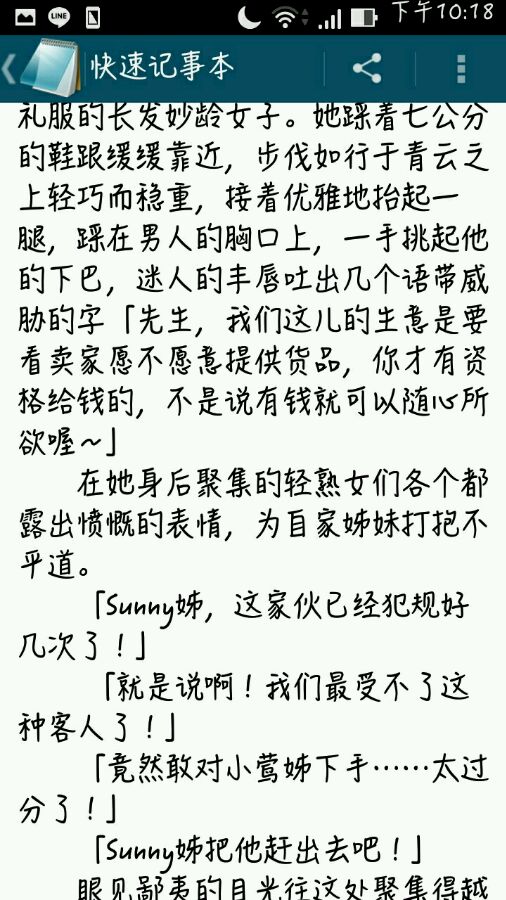 LINE
下午10:18
快速记事本
礼服的长发妙龄女子。她踩着七公分
的鞋跟缓缓靠近，步伐如行于青云之
上轻巧而稳重，接着优雅地抬起一
腿，踩在男人的胸口上，一手挑起他
的下巴，迷人的丰唇吐出几个语带威
胁的字「先生，我们这儿的生意是要
看卖家愿不愿意提供货品，你才有资
格给钱的，不是说有钱就可以随心所
欲喔~」
在她身后聚集的轻熟女们各个都
露出愤慨的表情，为自家姊妹打抱不
平道。
「Sunny姊，这家伙已经犯规好
几次了！」
「就是说啊！我们最受不了这
种客人了！」
「竟然敢对小莺姊下手……太过
分了！」
「Sunny姊把他赶出去吧！」
眼见鄙夷的目光往这处聚集得越